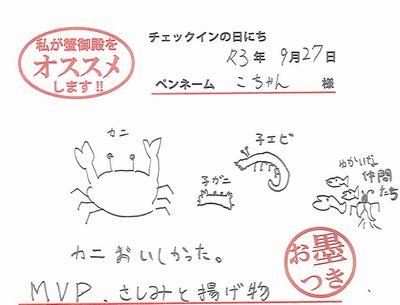 私が蟹御殿を
オススメ
します!!
チェックインの日にち
R3年 9月27日
ペンネーム こちゃん 様
カニ
子ガニ
子エビ
ゆかいな
仲間
たち
カニおいしかった。
MVP、さしみと揚げ物
お墨
つき